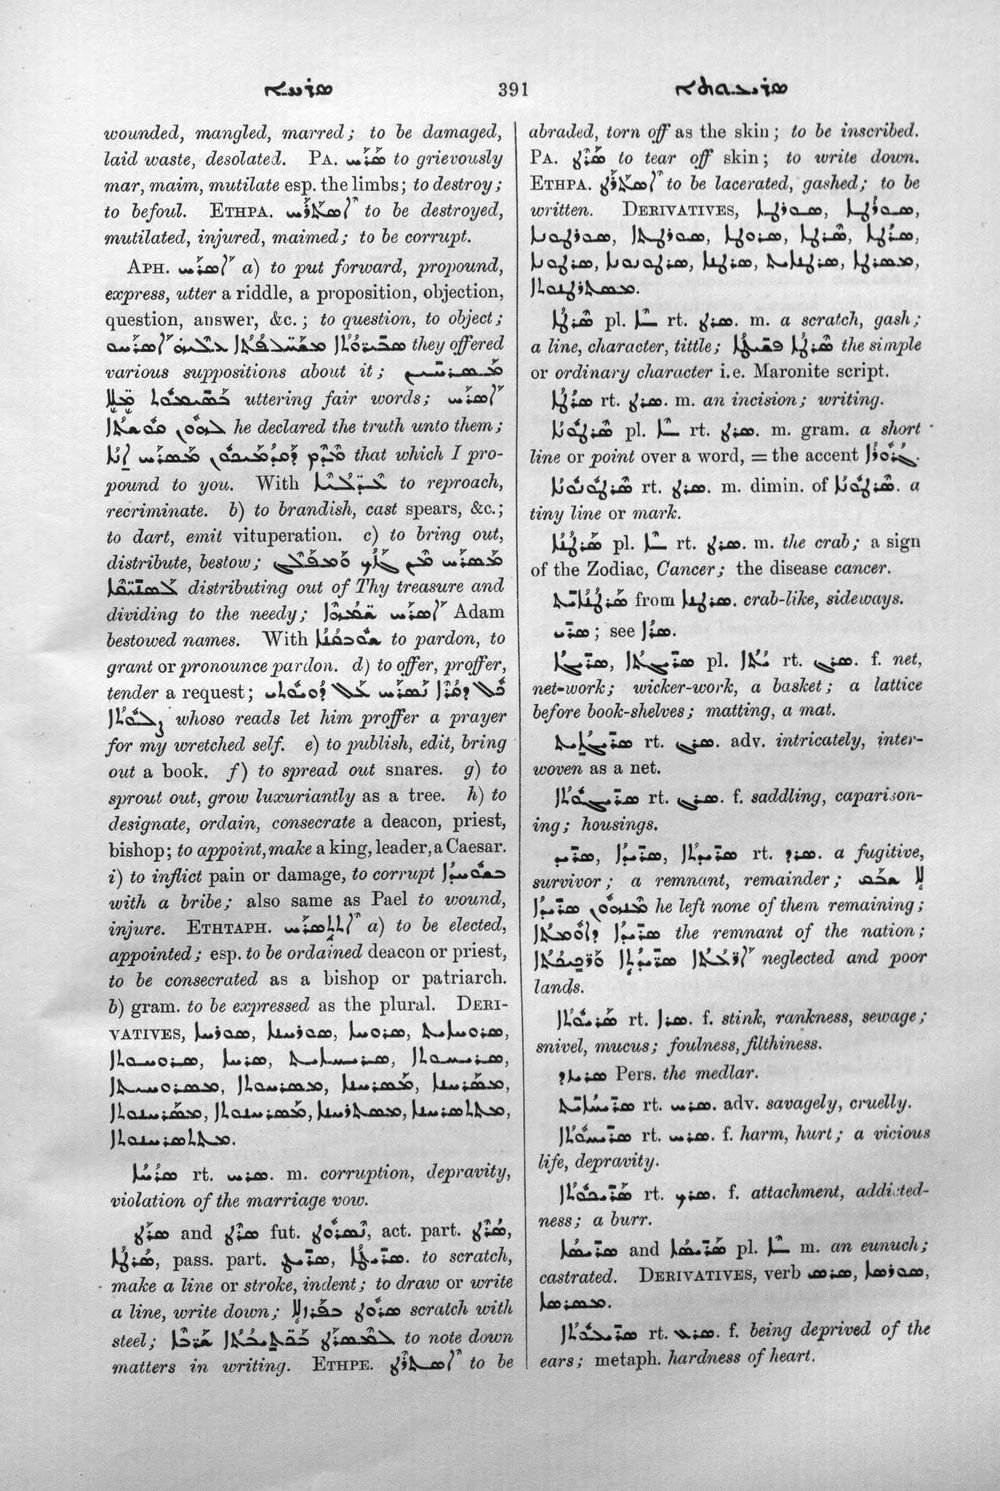 ܣܪܚܐ 391 ܣܪܝܥܘܬܐ
wounded, mangled, marred; to be damaged,
laid waste, desolated. PA. ܣܪܚ to grievously
mar, maim, mutilate esp. the limbs; to destroy;
to befoul. ETHPA. ܐܣܬܪܚ to be destroyed,
mutilated, injured, maimed; to be corrupt.
APH. ܐܣܪܚ a) to put forward, propound,
express, utter a riddle, a proposition, objection,
question, answer, &c.; to question, to object;
they offered
various suppositions about it; ܡܣܪܚܝܢ
uttering fair words; ܐܣܪܚ
ܠܗܘܢ he declared the truth unto them;
ܐܢܐ ܡܣܪܚ that which I pro-
pound to you. With to reproach,
recriminate. b) to brandish, cast spears, &c.;
to dart, emit vituperation. c) to bring out,
distribute, bestow; ܡܣܪܚ ܡܢ
distributing out of Thy treasure and
dividing to the needy; ܐܣܪܚ ܫܡܗܐ Adam
bestowed names. With ܫܘܒܩܢܐ to pardon, to
grant or pronounce pardon. d) to offer, proffer,
tender a request; ܟܠ ܕܩܪܐ ܢܣܪܚ ܥܠ ܕܘܝܘܬܝ
ܨܠܘܬܐ whoso reads let him proffer a prayer
for my wretched self. e) to publish, edit, bring
out a book. f) to spread out snares. g) to
sprout out, grow luxuriantly as a tree. h) to
designate, ordain, consecrate a deacon, priest,
bishop; to appoint, make a king, leader, a Caesar.
i) to inflict pain or damage, to corrupt ܒܫܘܚܕܐ
with a bribe; also same as Pael to wound,
injure. ETHTAPH. ܐܬܬܣܪܚ a) to be elected,
appointed; esp. to be ordained deacon or priest,
to be consecrated as a bishop or patriarch.
b) gram. to be expressed as the plural. DERI-
VATIVES, ܣܘܪܚܐ, ܣܘܪܚܢܐ, ܣܪܘܚܐ, ܣܪܘܚܐܝܬ,
ܣܪܘܚܘܬܐ, ܣܪܚܐ, ܣܪܝܚܐܝܬ, ܣܪܝܚܘܬܐ,
ܡܣܪܚܢܐ, ܡܣܪܚܢܐ, ܡܣܪܚܘܬܐ,
ܡܣܪܚܢܘܬܐ, ܡܣܪܚܢܘܬܐ, ܡܣܬܪܚܢܐ, ܡܬܬܣܪܚܢܐ,
ܡܬܬܣܪܚܢܘܬܐ.
ܣܪܚܐ rt. ܣܪܚ. m. corruption, depravity,
violation of the marriage vow.
ܣܪܛ and ܣܪܛ fut. ܢܣܪܘܛ, act. part. ܣܪܛ,
ܣܪܛܐ, pass. part. ܣܪܝܛ, ܣܪܝܛܐ. to scratch,
make a line or stroke, indent; to draw or write
a line, write down; ܣܪܘܛ ܒܦܪܙܠܐ scratch with
steel; ܠܡܣܪܛ ܫܪܒܐ to note down
matters in writing. ETHPE. ܐܣܬܪܛ to be
abraded, torn off as the skin; to be inscribed.
PA. ܣܪܛ to tear off skin; to write down.
ETHPA. ܐܣܬܪܛ to be lacerated, gashed; to be
written. DERIVATIVES, ܣܘܪܛܐ, ܣܘܪܛܐ,
ܣܘܪܛܘܢܐ, ܣܘܪܛܬܐ, ܣܪܘܛܐ, ܣܪܛܐ, ܣܪܛܐ,
ܣܪܛܘܢܐ, ܣܪܛܘܢܘܢܐ, ܣܪܛܢܐ, ܣܪܛܢܐܝܬ, ܡܣܪܛܐ,
ܡܣܬܪܛܢܘܬܐ.
ܣܪܛܐ pl. rt. ܣܪܛ. m. a scratch, gash;
a line, character, tittle; ܣܪܛܐ ܦܫܝܛܐ the simple
or ordinary character i.e. Maronite script.
ܣܪܛܐ rt. ܣܪܛ. m. an incision; writing.
ܣܪܛܘܢܐ pl. rt. ܣܪܛ. m. gram. a short
line or point over a word, = the accent.
ܣܪܛܘܢܘܢܐ rt. ܣܪܛ. m. dimin. of ܣܪܛܘܢܐ. a
tiny line or mark.
ܣܪܛܢܐ pl. rt. ܣܪܛ. m. the crab; a sign
of the Zodiac, Cancer; the disease cancer.
ܣܪܛܢܐܝܬ from ܣܪܛܢܐ. crab-like, sideways.
ܣܪܝ; see ܣܪܐ.
ܣܪܝܓܐ, ܣܪܝܓܬܐ pl. rt. ܣܪܓ. f. net,
net-work; wicker-work, a basket; a lattice
before book-shelves; matting, a mat.
ܣܪܝܓܐܝܬ rt. ܣܪܓ. adv. intricately, inter-
woven as a net.
ܣܪܝܓܘܬܐ rt. ܣܪܓ. f. saddling, caparison-
ing; housings.
ܣܪܝܕ, ܣܪܝܕܐ, ܣܪܝܕܬܐ rt. ܣܪܕ. a fugitive,
survivor; a remnant, remainder; ܠܐ ܫܒܩ
ܡܢܗܘܢ ܣܪܝܕܐ he left none of them remaining;
ܣܪܝܕܐ ܕܐܘܡܬܐ the remnant of the nation;
ܐܪܥܬܐ neglected and poor
lands.
ܣܪܝܘܬܐ rt. ܣܪܐ. f. stink, rankness, sewage;
snivel, mucus; foulness, filthiness.
Pers. the medlar.
ܣܪܝܚܐܝܬ rt. ܣܪܚ. adv. savagely, cruelly.
ܣܪܝܚܘܬܐ rt. ܣܪܚ. f. harm, hurt; a vicious
life, depravity.
ܣܪܝܟܘܬܐ rt. ܣܪܟ. f. attachment, addicted-
ness; a burr.
ܣܪܝܣܐ and ܣܪܝܣܐ pl. m. an eunuch;
castrated. DERIVATIVES, verb ܣܪܣ, ܣܘܪܣܐ,
ܡܣܪܣܐ.
ܣܪܝܥܘܬܐ rt. ܣܪܥ. f. being deprived of the
ears; metaph. hardness of heart.